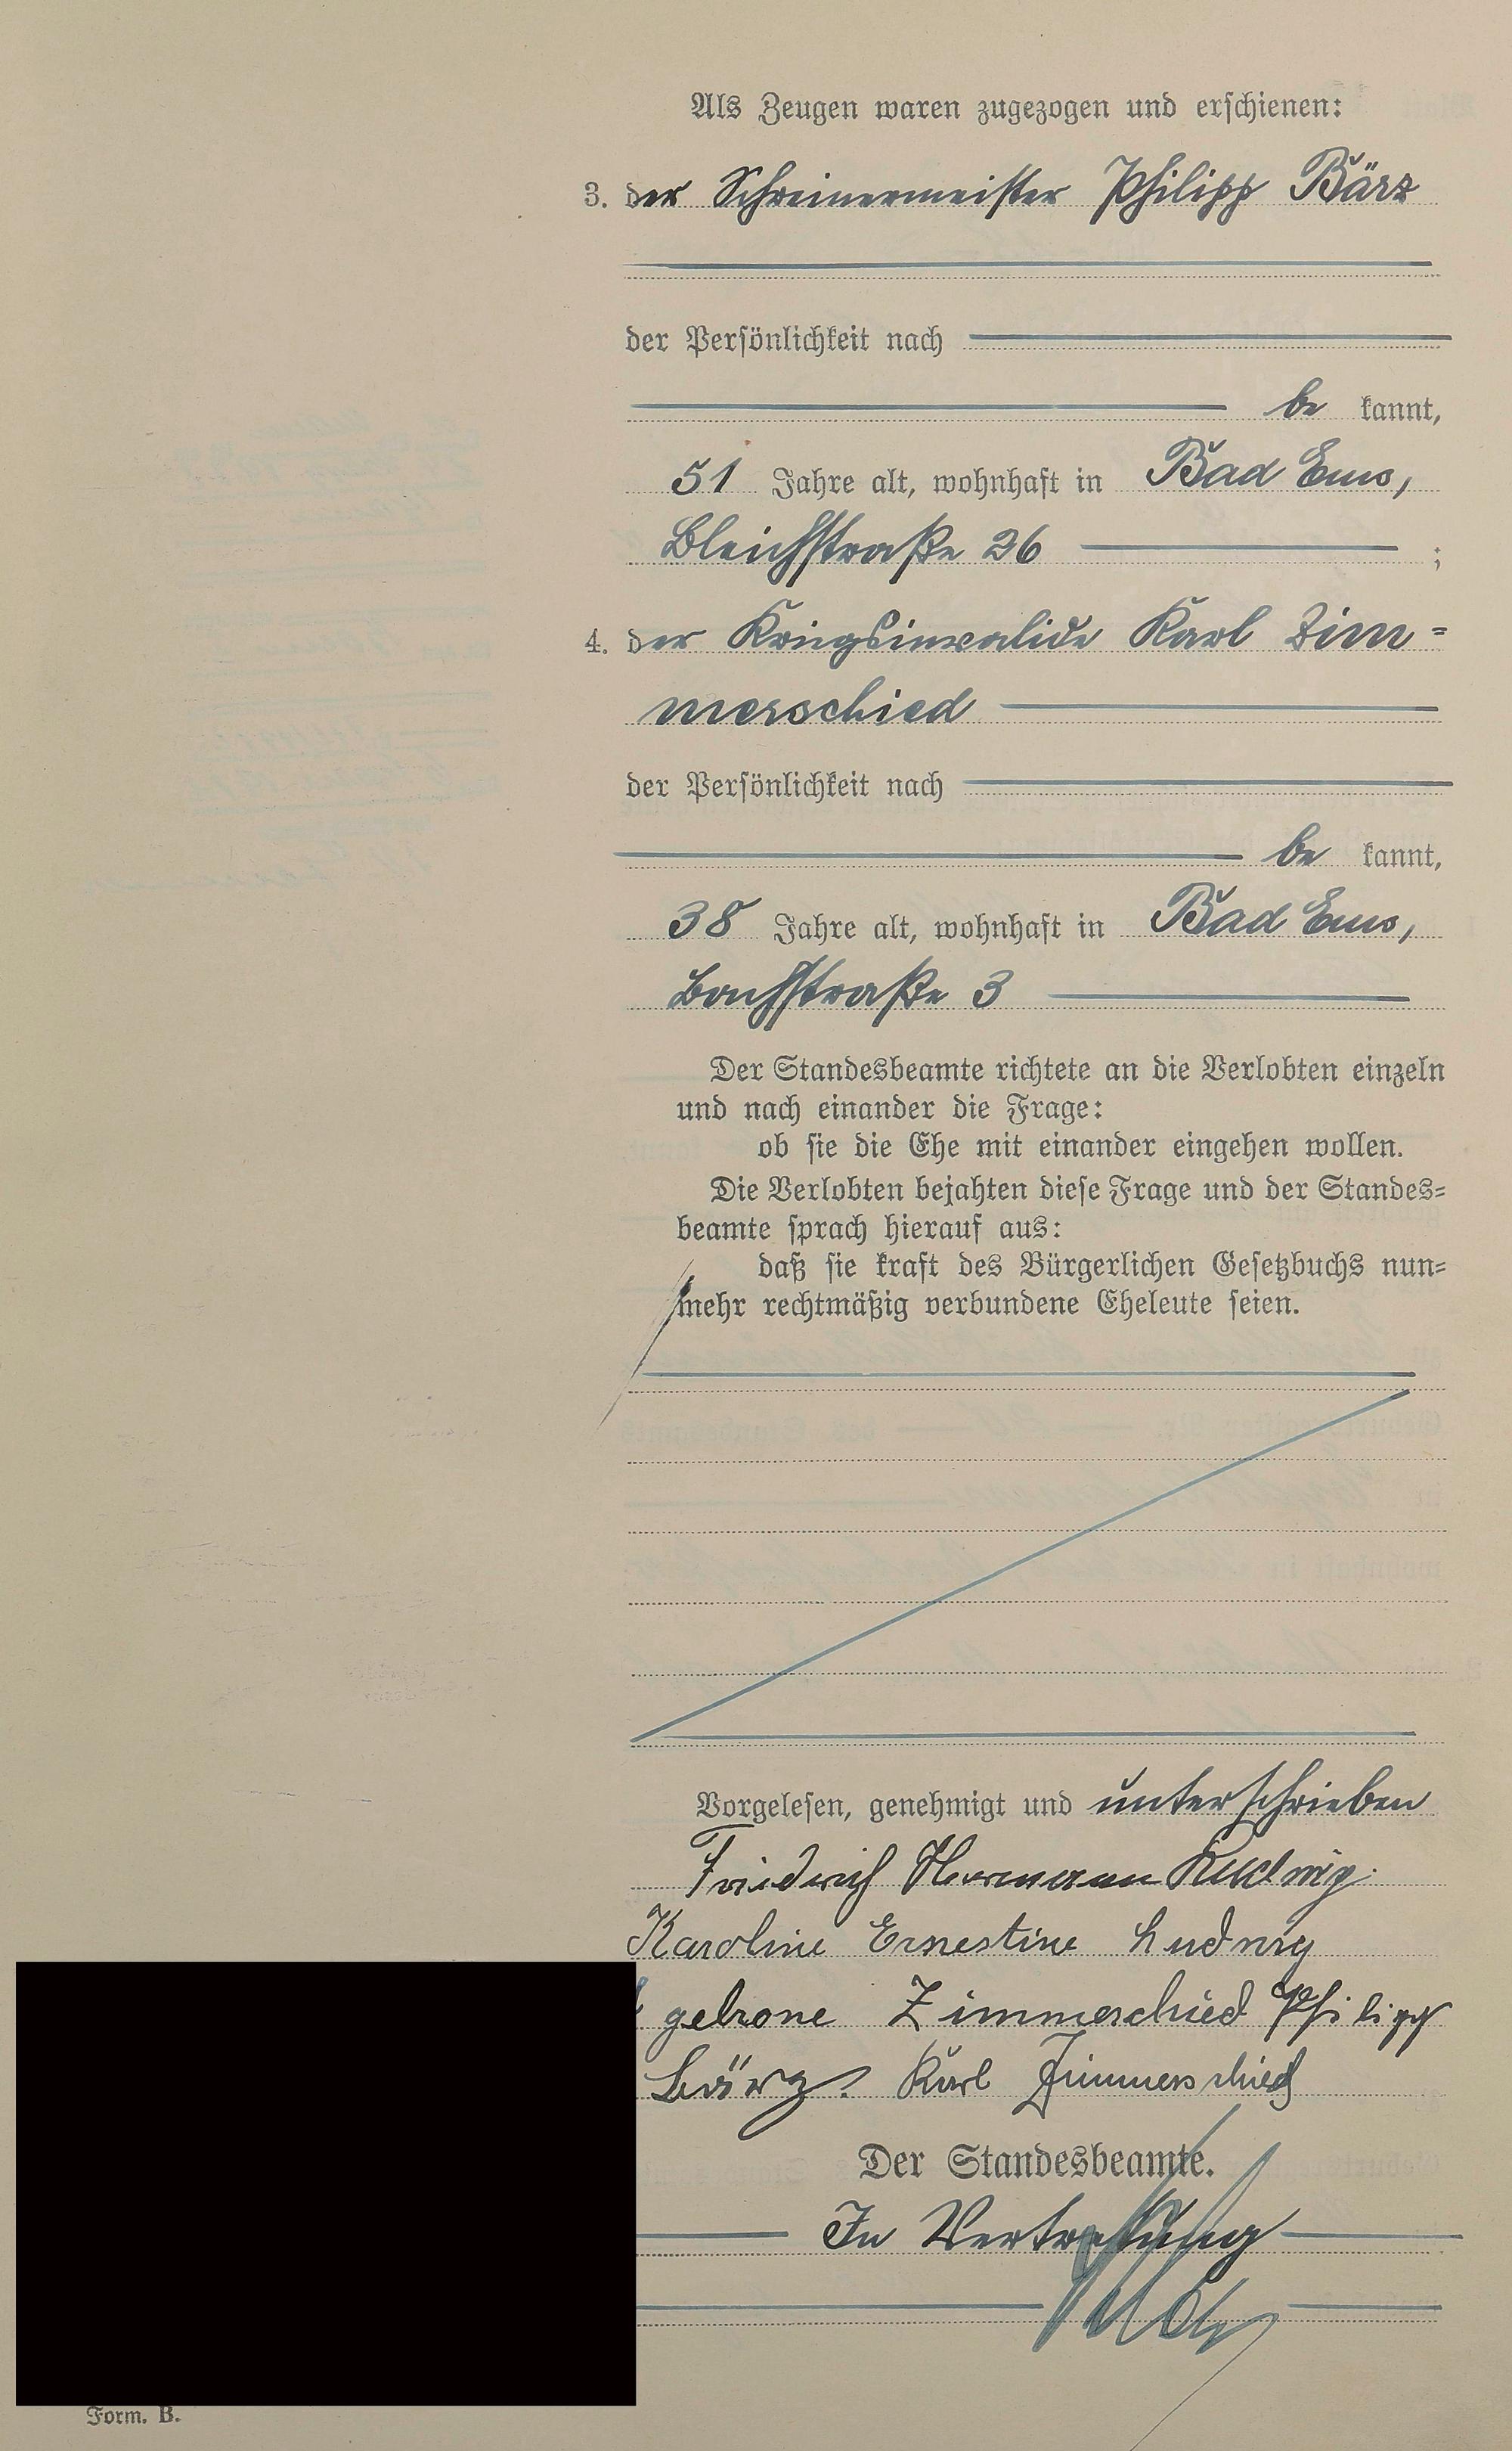 Als Zeugen waren zugezogen und erschienen:
3. der Schreinermeister Philipp Bärz
der Persönlichkeit nach
be kannt,
51 Jahre alt, wohnhaft in Bad Ems,
Bleichstraße 26 ;
4. der Kriegsinvalide Karl Zim=
merschied
der Persönlichkeit nach
be kannt,
38 Jahre alt, wohnhaft in Bad Ems,
Bachstraße 3
Der Standesbeamte richtete an die Verlobten einzeln
und nach einander die Frage:
ob sie die Ehe mit einander eingehen wollen.
Die Verlobten bejahten diese Frage und der Standes=
beamte sprach hierauf aus:
daß sie kraft des Bürgerlichen Gesetzbuchs nun=
mehr rechtmäßig verbundene Eheleute seien.
Vorgelesen, genehmigt und unterschrieben
Friedrich Hermann Ludwig.
Karoline Ernestine Ludwig
gebrone Zimmerschied Philipp
Bärz. Karl Zimmerschied
Der Standesbeamte.
In Vertretung
Form. B.